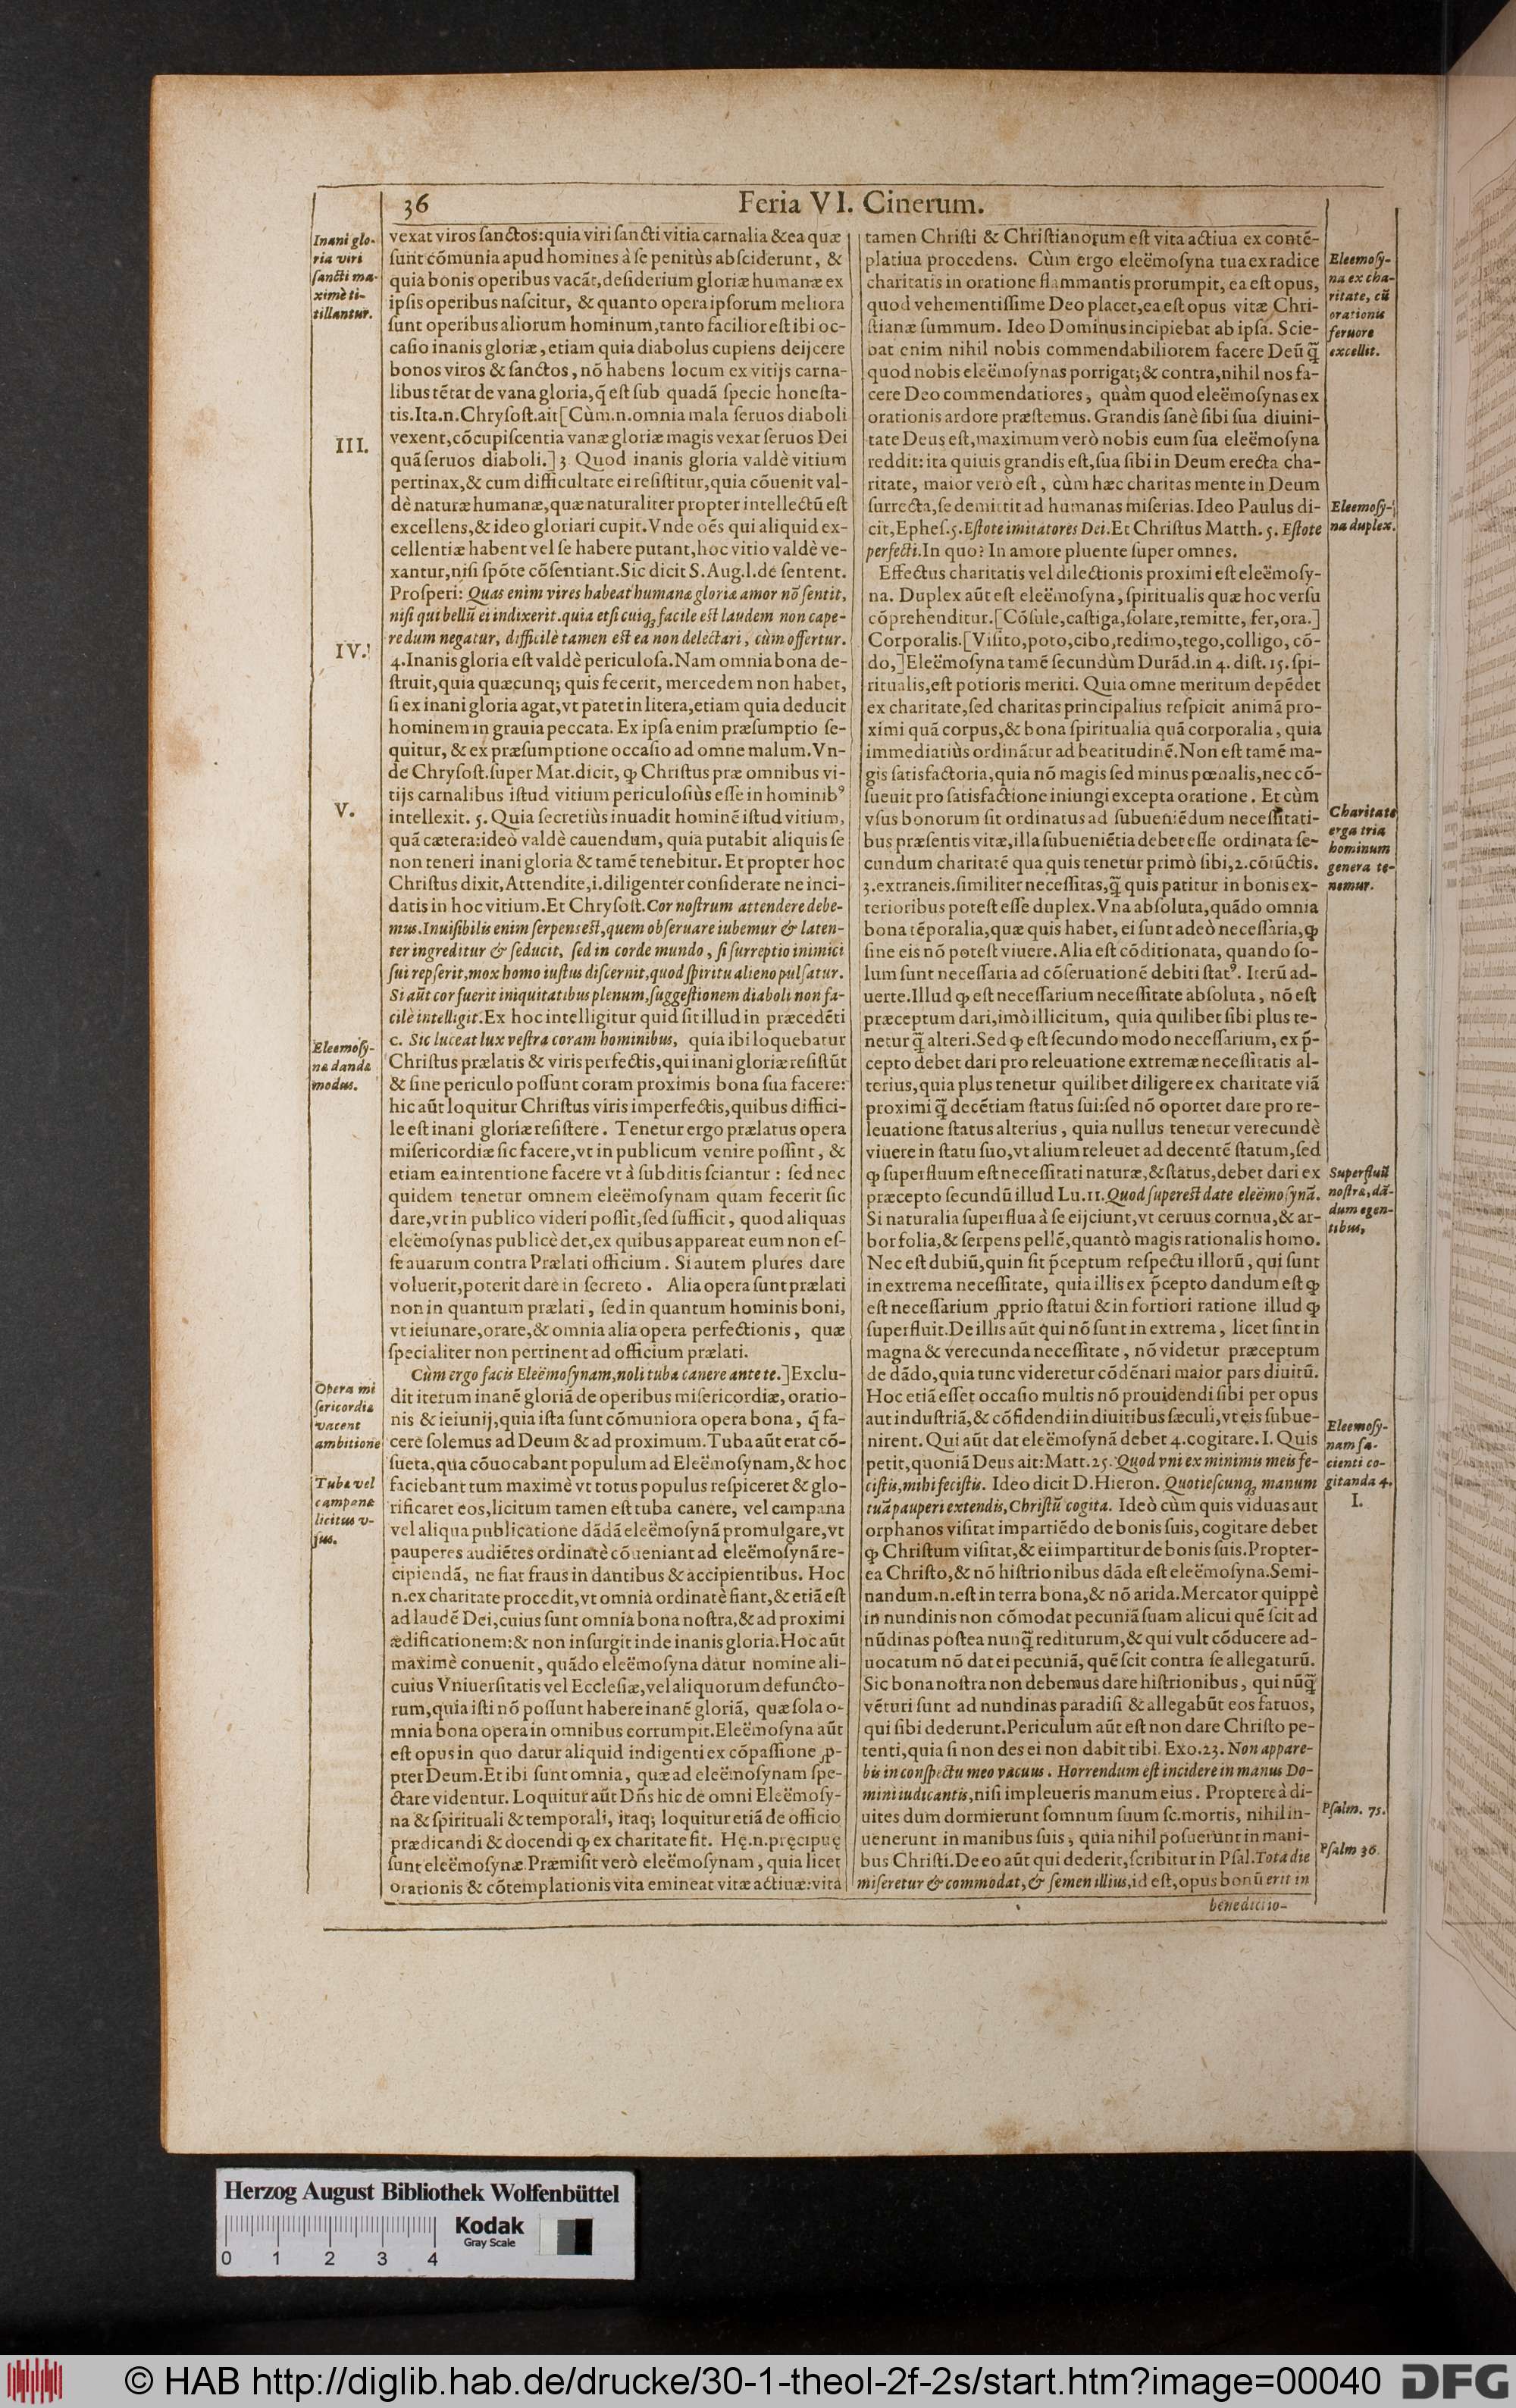 36
Feria VI. Cinerum.
Inani glo-
ria viri
ſancti ma-
ximè ti-
tillantur.
III.
IV.
V.
Eleemoſy-
na danda
modus.
Opera mi
ſericordia
vacent
ambitione
Tuba vel
campana
licitus v-
ſus.
vexat viros ſanctos: quia viri ſancti vitia carnalia & ea quæ
ſunt cõmunia apud homines à ſe penitùs abſciderunt, &
quia bonis operibus vacãt, deſiderium gloriæ humanæ ex
ipſis operibus naſcitur, & quanto opera ipſorum meliora
ſunt operibus aliorum hominum, tanto facilior eſt ibi oc-
caſio inanis gloriæ, etiam quia diabolus cupiens deijcere
bonos viros & ſanctos, nõ habens locum ex vitijs carna-
libus tẽtat de vana gloria, q̃ eſt ſub quadã ſpecie honeſta-
tis. Ita.n. Chryſoſt. ait [Cùm.n. omnia mala ſeruos diaboli
vexent, cõcupiſcentia vanæ gloriæ magis vexat ſeruos Dei
quã ſeruos diaboli.] 3 Quod inanis gloria valdè vitium
pertinax, & cum difficultate ei reſiſtitur, quia cõuenit val-
dè naturæ humanæ, quæ naturaliter propter intellectũ eſt
excellens, & ideo gloriari cupit. Vnde oẽs qui aliquid ex-
cellentiæ habent vel ſe habere putant, hoc vitio valdè ve-
xantur, niſi ſpõte cõſentiant. Sic dicit S. Aug. l. de ſentent.
Proſperi: Quas enim vires habeat humanæ gloriæ amor nõ ſentit,
niſi qui bellũ ei indixerit. quia etſi cuiq; facile eſt laudem non cape-
re dum negatur, difficilè tamen eſt ea non delectari, cùm offertur.
4. Inanis gloria eſt valdè periculoſa. Nam omnia bona de-
ſtruit, quia quæcunq; quis fecerit, mercedem non habet,
ſi ex inani gloria agat, vt patet in litera, etiam quia deducit
hominem in grauia peccata. Ex ipſa enim præſumptio ſe-
quitur, & ex præſumptione occaſio ad omne malum. Vn-
de Chryſoſt. ſuper Mat. dicit, ꝙ Chriſtus præ omnibus vi-
tijs carnalibus iſtud vitium periculoſiùs eſſe in hominibꝰ
intellexit. 5. Quia ſecretiùs inuadit hominẽ iſtud vitium,
quã cætera: ideò valdè cauendum, quia putabit aliquis ſe
non teneri inani gloria & tamẽ tenebitur. Et propter hoc
Chriſtus dixit, Attendite, i. diligenter conſiderate ne inci-
datis in hoc vitium. Et Chryſoſt. Cor noſtrum attendere debe-
mus. Inuiſibilis enim ſerpens eſt, quem obſeruare iubemur & laten-
ter ingreditur & ſeducit, ſed in corde mundo, ſi ſurreptio inimici
ſui repſerit, mox homo iuſtus diſcernit, quod ſpiritu alieno pulſatur.
Si aũt cor fuerit iniquitatibus plenum, ſuggeſtionem diaboli non fa-
cilè intelligit. Ex hoc intelligitur quid ſit illud in præcedẽti
c. Sic luceat lux veſtra coram hominibus, quia ibi loquebatur
Chriſtus prælatis & viris perfectis, qui inani gloriæ reſiſtũt
& ſine periculo poſſunt coram proximis bona ſua facere:
hic aũt loquitur Chriſtus viris imperfectis, quibus diffici-
le eſt inani gloriæ reſiſtere. Tenetur ergo prælatus opera
miſericordiæ ſic facere, vt in publicum venire poſſint, &
etiam ea intentione facere vt à ſubditis ſciantur: ſed nec
quidem tenetur omnem eleëmoſynam quam fecerit ſic
dare, vt in publico videri poſſit, ſed ſufficit, quod aliquas
eleëmoſynas publicè det, ex quibus appareat eum non eſ-
ſe auarum contra Prælati officium. Si autem plures dare
voluerit, poterit dare in ſecreto. Alia opera ſunt prælati
non in quantum prælati, ſed in quantum hominis boni,
vt ieiunare, orare, & omnia alia opera perfectionis, quæ
ſpecialiter non pertinent ad officium prælati.
Cùm ergo facis Eleëmoſynam, noli tuba canere ante te.] Exclu-
dit iterum inanẽ gloriã de operibus miſericordiæ, oratio-
nis & ieiunij, quia iſta ſunt cõmuniora opera bona, q̃ fa-
cere ſolemus ad Deum & ad proximum. Tuba aũt erat cõ-
ſueta, qua cõuocabant populum ad Eleëmoſynam, & hoc
faciebant tum maximè vt totus populus reſpiceret & glo-
rificaret eos, licitum tamen eſt tuba canere, vel campana
vel aliqua publicatione dãdã eleëmoſynã promulgare, vt
pauperes audiẽtes ordinatè cõueniant ad eleëmoſynã re-
cipiendã, ne fiat fraus in dantibus & accipientibus. Hoc
n. ex charitate procedit, vt omnia ordinatè fiant, & etiã eſt
ad laudẽ Dei, cuius ſunt omnia bona noſtra, & ad proximi
ædificationem: & non inſurgit inde inanis gloria. Hoc aũt
maximè conuenit, quãdo eleëmoſyna datur nomine ali-
cuius Vniuerſitatis vel Eccleſiæ, vel aliquorum defuncto-
rum, quia iſti nõ poſſunt habere inanẽ gloriã, quæ ſola o-
mnia bona opera in omnibus corrumpit. Eleëmoſyna aũt
eſt opus in quo datur aliquid indigenti ex cõpaſſione ꝓ-
pter Deum. Et ibi ſunt omnia, quæ ad eleëmoſynam ſpe-
ctare videntur. Loquitur aũt Dñs hic de omni Eleëmoſy-
na & ſpirituali & temporali, itaq; loquitur etiã de officio
prædicandi & docendi ꝙ ex charitate fit. Hę.n. pręcipuę
ſunt eleëmoſynæ. Præmiſit verò eleëmoſynam, quia licet
orationis & cõtemplationis vita emineat vitæ actiuæ: vita
tamen Chriſti & Chriſtianorum eſt vita actiua ex contẽ-
platiua procedens. Cùm ergo eleëmoſyna tua ex radice
charitatis in oratione flammantis prorumpit, ea eſt opus,
quod vehementiſſime Deo placet, ea eſt opus vitæ Chri-
ſtianæ ſummum. Ideo Dominus incipiebat ab ipſa. Scie-
bat enim nihil nobis commendabiliorem facere Deũ q̃
quod nobis eleëmoſynas porrigat; & contra, nihil nos fa-
cere Deo commendatiores, quàm quod eleëmoſynas ex
orationis ardore præſtemus. Grandis ſanè ſibi ſua diuini-
tate Deus eſt, maximum verò nobis eum ſua eleëmoſyna
reddit: ita quiuis grandis eſt, ſua ſibi in Deum erecta cha-
ritate, maior verò eſt, cùm hæc charitas mente in Deum
ſurrecta, ſe demittit ad humanas miſerias. Ideo Paulus di-
cit, Epheſ. 5. Eſtote imitatores Dei. Et Chriſtus Matth. 5. Eſtote
perfecti. In quo? In amore pluente ſuper omnes.
Effectus charitatis vel dilectionis proximi eſt eleëmoſy-
na. Duplex aũt eſt eleëmoſyna, ſpiritualis quæ hoc verſu
cõprehenditur. [Cõſule, caſtiga, ſolare, remitte, fer, ora.]
Corporalis. [Viſito, poto, cibo, redimo, tego, colligo, cõ-
do,] Eleëmoſyna tamẽ ſecundùm Durãd. in 4. diſt. 15. ſpi-
ritualis, eſt potioris meriti. Quia omne meritum depẽdet
ex charitate, ſed charitas principalius reſpicit animã pro-
ximi quã corpus, & bona ſpiritualia quã corporalia, quia
immediatiùs ordinãtur ad beatitudinẽ. Non eſt tamẽ ma-
gis ſatisfactoria, quia nõ magis ſed minus pœnalis, nec cõ-
ſueuit pro ſatisfactione iniungi excepta oratione. Et cùm
vſus bonorum ſit ordinatus ad ſubueniẽdum neceſſitati-
bus præſentis vitæ, illa ſubueniẽtia debet eſſe ordinata ſe-
cundum charitatẽ qua quis tenetur primò ſibi, 2. cõiũctis.
3. extraneis. ſimiliter neceſſitas, q̃ quis patitur in bonis ex-
terioribus poteſt eſſe duplex. Vna abſoluta, quãdo omnia
bona tẽporalia, quæ quis habet, ei ſunt adeò neceſſaria, ꝙ
ſine eis nõ poteſt viuere. Alia eſt cõditionata, quando ſo-
lum ſunt neceſſaria ad cõſeruationẽ debiti ſtatꝰ. Iterũ ad-
uerte. Illud ꝙ eſt neceſſarium neceſſitate abſoluta, nõ eſt
præceptum dari, imò illicitum, quia quilibet ſibi plus te-
netur q̃ alteri. Sed ꝙ eſt ſecundo modo neceſſarium, ex p̃-
cepto debet dari pro releuatione extremæ neceſſitatis al-
terius, quia plus tenetur quilibet diligere ex charitate viã
proximi q̃ decẽtiam ſtatus ſui: ſed nõ oportet dare pro re-
leuatione ſtatus alterius, quia nullus tenetur verecundè
viuere in ſtatu ſuo, vt alium releuet ad decentẽ ſtatum, ſed
ꝙ ſuperfluum eſt neceſſitati naturæ, & ſtatus, debet dari ex
præcepto ſecundũ illud Lu. 11. Quod ſupereſt date eleëmoſynã.
Si naturalia ſuperflua à ſe eijciunt, vt ceruus cornua, & ar-
bor folia, & ſerpens pellẽ, quantò magis rationalis homo.
Nec eſt dubiũ, quin ſit p̃ceptum reſpectu illorũ, qui ſunt
in extrema neceſſitate, quia illis ex p̃cepto dandum eſt ꝙ
eſt neceſſarium ꝓprio ſtatui & in fortiori ratione illud ꝙ
ſuperfluit. De illis aũt qui nõ ſunt in extrema, licet ſint in
magna & verecunda neceſſitate, nõ videtur præceptum
de dãdo, quia tunc videretur cõdẽnari maior pars diuitũ.
Hoc etiã eſſet occaſio multis nõ prouidendi ſibi per opus
aut induſtriã, & cõfidendi in diuitibus ſæculi, vt eis ſubue-
nirent. Qui aũt dat eleëmoſynã debet 4. cogitare. I. Quis
petit, quoniã Deus ait: Matt. 25. Quod vni ex minimis meis fe-
ciſtis, mihi feciſtis. Ideo dicit D. Hieron. Quotieſcunq; manum
tuã pauperi extendis, Chriſtũ cogita. Ideò cùm quis viduas aut
orphanos viſitat impartiẽdo de bonis ſuis, cogitare debet
ꝙ Chriſtum viſitat, & ei impartitur de bonis ſuis. Propter-
ea Chriſto, & nõ hiſtrionibus dãda eſt eleëmoſyna. Semi-
nandum.n. eſt in terra bona, & nõ arida. Mercator quippè
in nundinis non cõmodat pecuniã ſuam alicui quẽ ſcit ad
nũdinas poſtea nunq̃ rediturum, & qui vult cõducere ad-
uocatum nõ dat ei pecuniã, quẽ ſcit contra ſe allegaturũ.
Sic bona noſtra non debemus dare hiſtrionibus, qui nũq̃
vẽturi ſunt ad nundinas paradiſi & allegabũt eos fatuos,
qui ſibi dederunt. Periculum aũt eſt non dare Chriſto pe-
tenti, quia ſi non des ei non dabit tibi. Exo. 23. Non appare-
bis in conſpectu meo vacuus. Horrendum eſt incidere in manus Do-
mini iudicantis, niſi impleueris manum eius. Propterea di-
uites dum dormierunt ſomnum ſuum ſc. mortis, nihil in-
uenerunt in manibus ſuis, quia nihil poſuerunt in mani-
bus Chriſti. De eo aũt qui dederit, ſcribitur in Pſal. Tota die
miſeretur & commodat, & ſemen illius, id eſt, opus bonũ erit in
benedictio-
Eleemoſy-
na ex cha-
ritate, cũ
orationis
feruore
excellit.
Eleemoſy-
na duplex.
Charitate
erga tria
hominum
genera te-
nemur.
Superfluã
noſtra, dã-
dum egen-
tibus,
Eleemoſy-
nam fa-
cienti co-
gitanda 4.
I.
Pſalm. 75.
Pſalm 36
Herzog August Bibliothek Wolfenbüttel
Kodak
Gray Scale
0 1 2 3 4
© HAB http://diglib.hab.de/drucke/30-1-theol-2f-2s/start.htm?image=00040
DFG